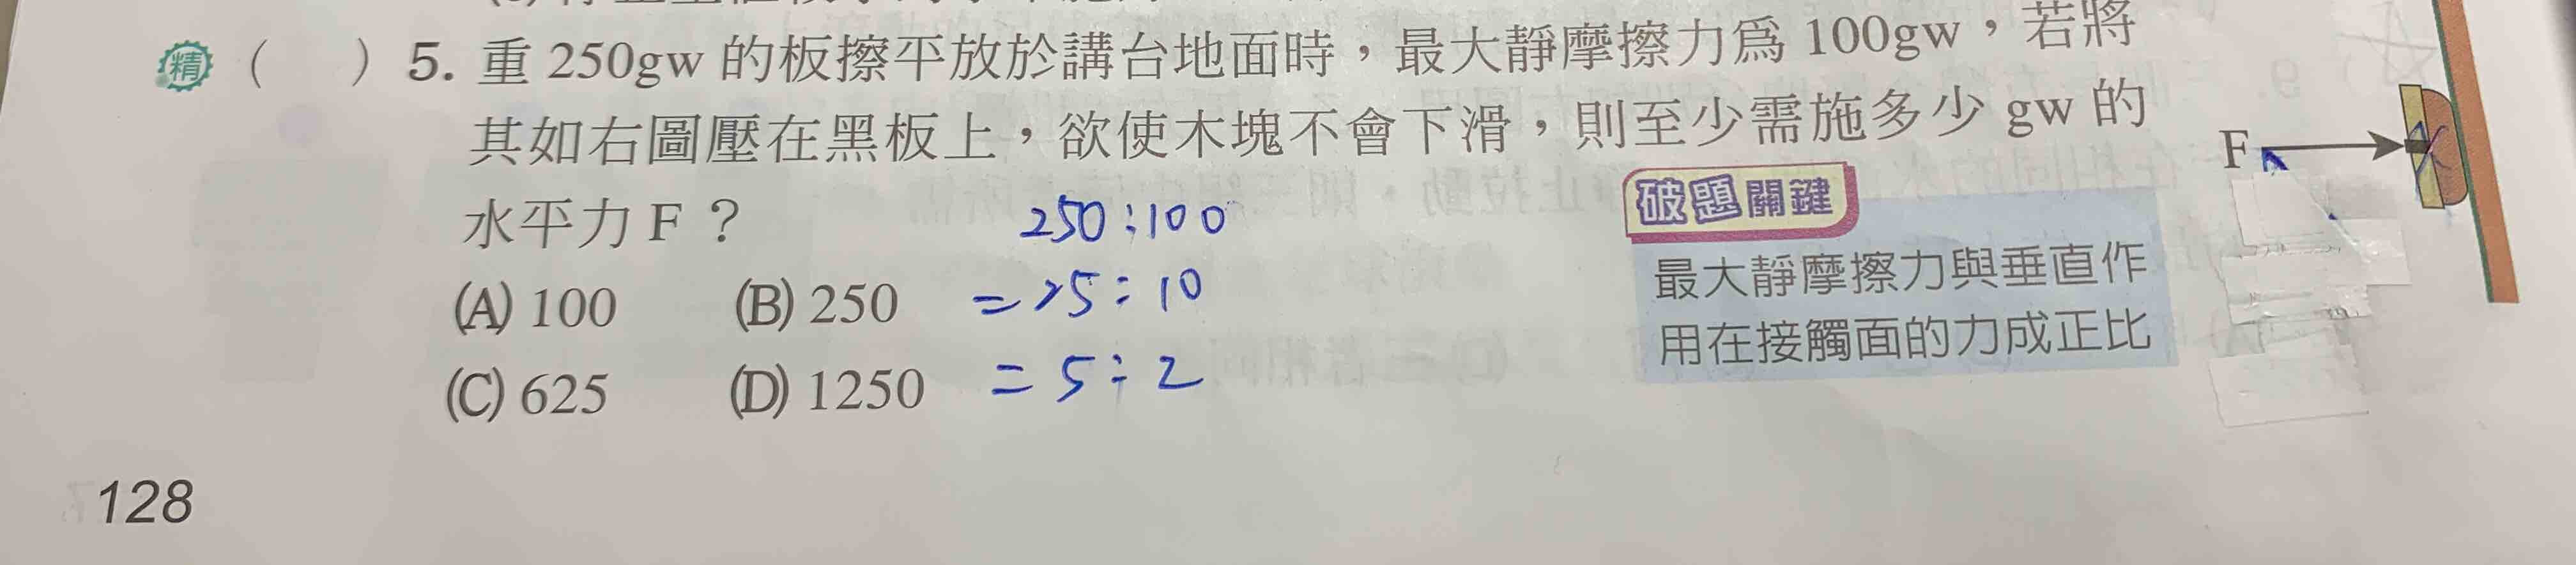 精 (　) 5. 重 250gw 的板擦平放於講台地面時，最大靜摩擦力爲 100gw，若將
其如右圖壓在黑板上，欲使木塊不會下滑，則至少需施多少 gw 的
水平力 F？
(A) 100 (B) 250
(C) 625 (D) 1250
250:100
=25:10
=5:2
破題關鍵
最大靜摩擦力與垂直作
用在接觸面的力成正比
F
128